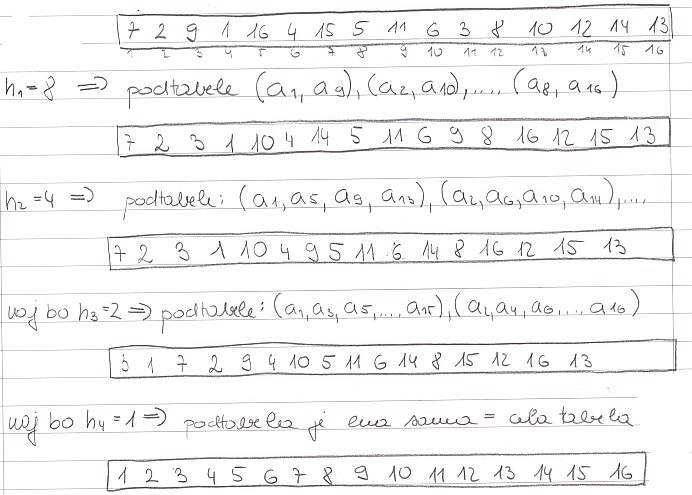 7 2 9 1 16 4 15 5 11 6 3 8 10 12 14 13
1 2 3 4 5 6 7 8 9 10 11 12 13 14 15 16
h1=8 => podtabele (a1, a9), (a2, a10), .... (a8, a16)
7 2 3 1 10 4 14 5 11 6 9 8 16 12 15 13
h2=4 => podtabele: (a1, a5, a9, a13), (a2, a6, a10, a14), ....
7 2 3 1 10 4 9 5 11 6 14 8 16 12 15 13
naj bo h3=2 => podtabele: (a1, a3, a5, ..., a15), (a2, a4, a6, ... a16)
3 1 7 2 9 4 10 5 11 6 14 8 15 12 16 13
naj bo h4=1 => podtabela je ena sama = cela tabela
1 2 3 4 5 6 7 8 9 10 11 12 13 14 15 16